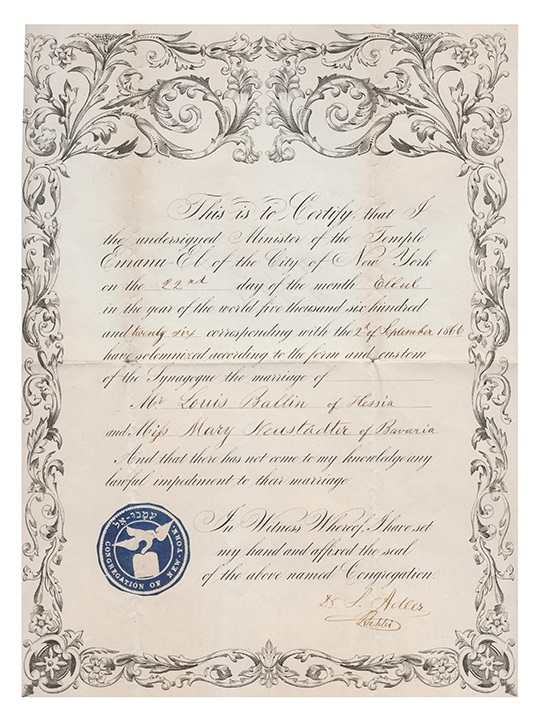 This is to Certify, that I
the undersigned Minister of the Temple
Emanu-El of the City of New York
on the 22nd day of the month Ellul
in the year of the world five thousand six hundred
and twenty six corresponding with the 2d of September 1866
have solemnized according to the form and custom
of the Synagogue the marriage of
Mr Louis Ballin of Hessia
and Miss Mary Neustädter of Bavaria
And that there has not come to my knowledge any
lawful impediment to their marriage
In Witness Whereof, I have set
my hand and affixed the seal
of the above named Congregation
Dr S. Adler
עמנו-אל
CONGREGATION OF NEW-YORK.